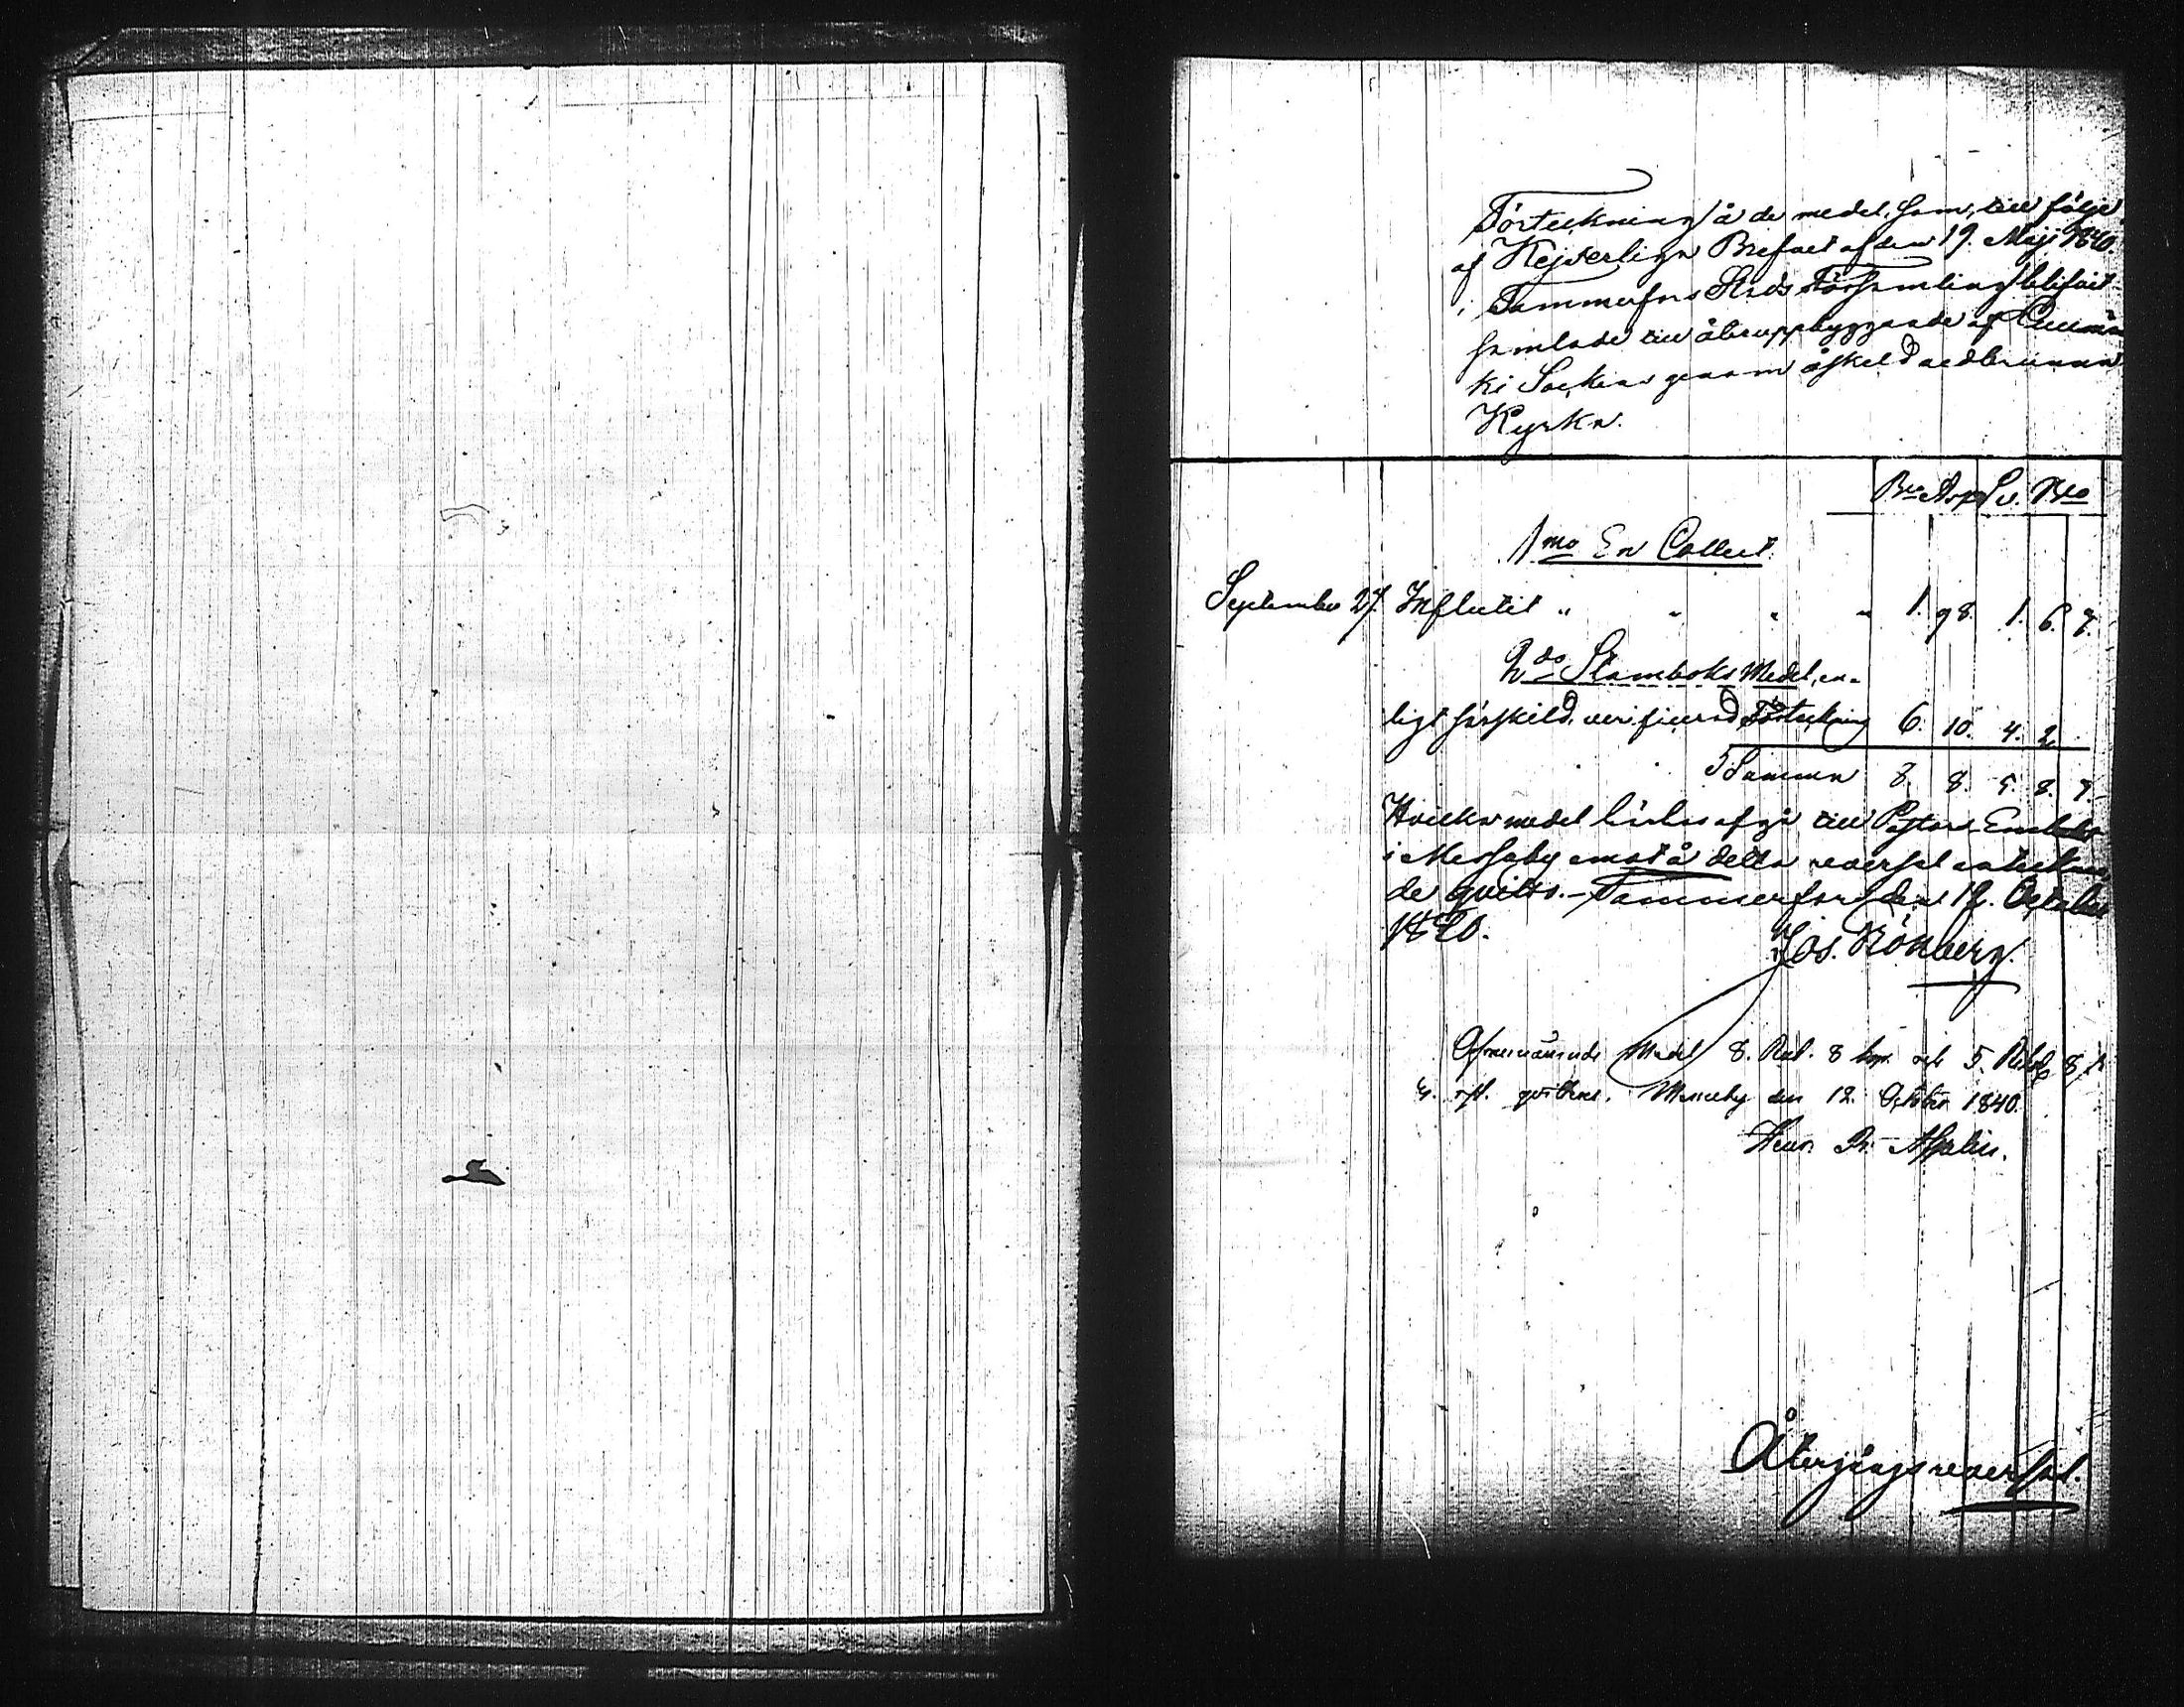 Förteckning å de medel, som, till följe
af Kejserliga Brefvet af den 19. Maji 1840.
i Tammerfors Stads Församling blifvit
samlade till återuppbyggande af
ki Socken genom åskeld nedbrunna
Kyrka.
Bco Ass. Sv. Bco
1mo En Collect.
September 27. Influtit " " " " 1. 98. 1. 6. 7.
2do Stamboks Medel, en-
ligt särskild verificerad Förteckning 6. 10. 4. 2
Summa 8. 8. 5. 8. 7.
Hvilka medel härhos afgå till Pastors Embetet
i Messuby emot å detta reversal anteknan
de qvitto. - Tammerfors den 12. October
1840.
Jos. Rönberg
Ofvannämnde Medel 8. Rub. 8 kop. och 5. Riksd. 8 s
4. rst. qvitteras. Messuby den 12. October 1840.
Återgångsreversal.